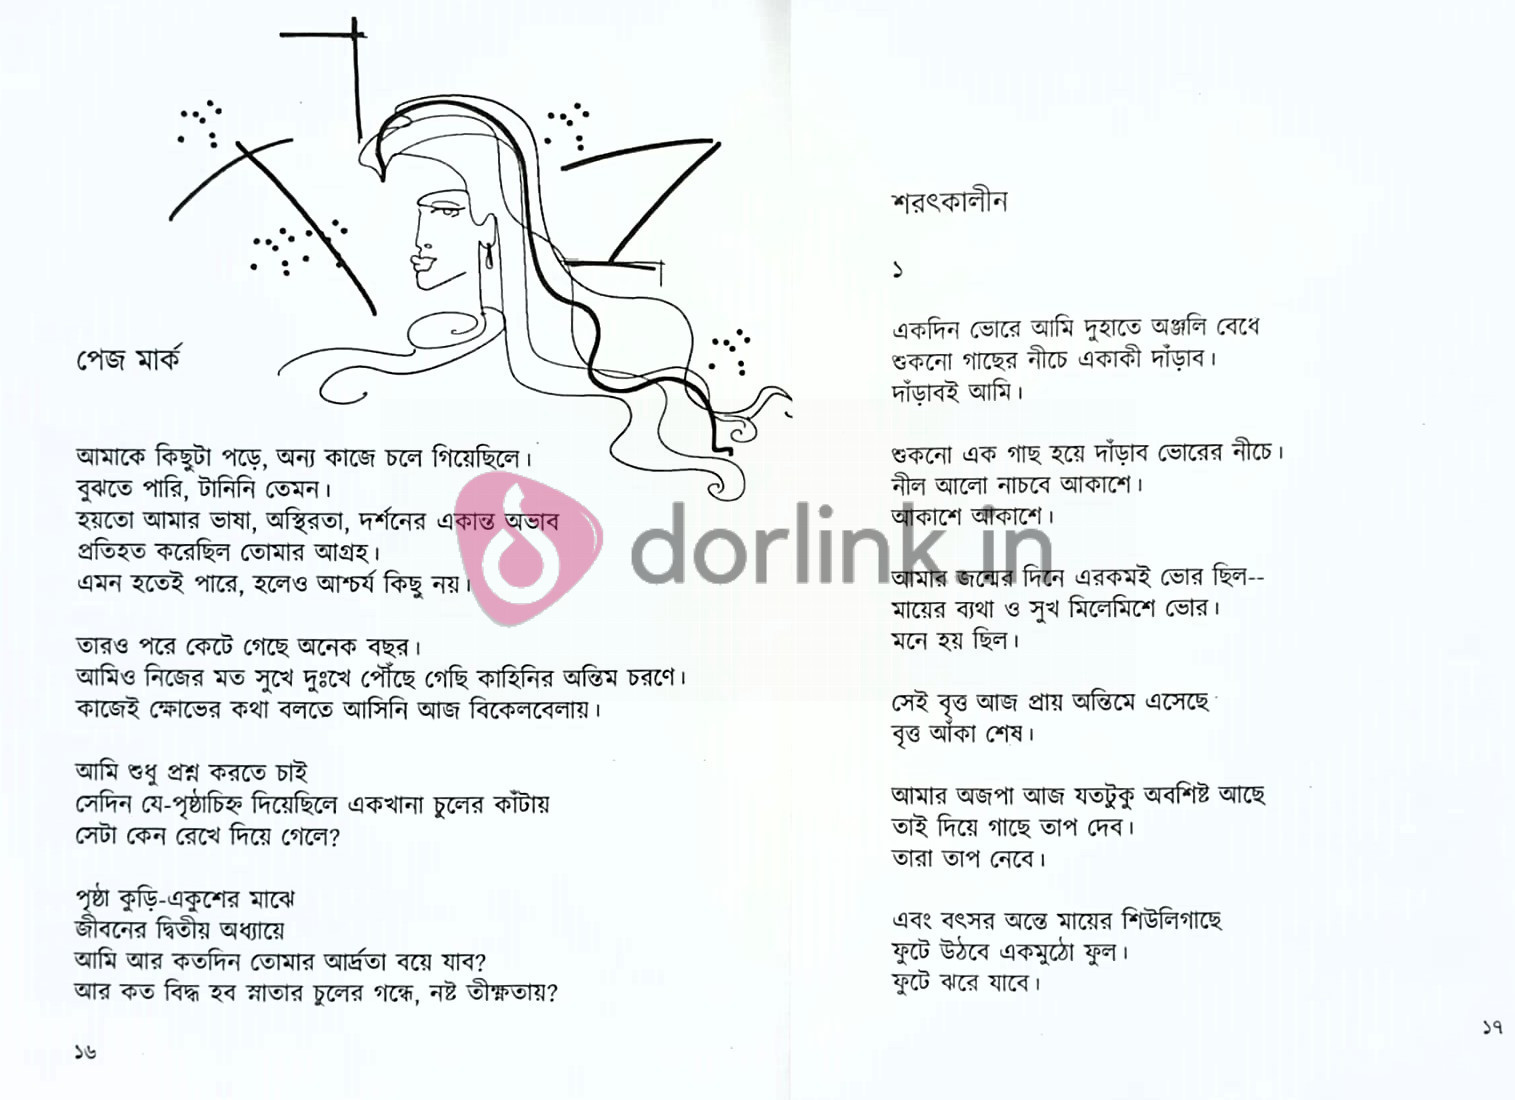 পেজ মার্ক
আমাকে কিছুটা পড়ে, অন্য কাজে চলে গিয়েছিলে।
বুঝতে পারি, টানিনি তেমন।
হয়তো আমার ভাষা, অস্থিরতা, দর্শনের একান্ত অভাব
প্রতিহত করেছিল তোমার আগ্রহ।
এমন হতেই পারে, হলেও আশ্চর্য কিছু নয়।
তারও পরে কেটে গেছে অনেক বছর।
আমিও নিজের মত সুখে দুঃখে পৌঁছে গেছি কাহিনির অন্তিম চরণে।
কাজেই ক্ষোভের কথা বলতে আসিনি আজ বিকেলবেলায়।
আমি শুধু প্রশ্ন করতে চাই
সেদিন যে-পৃষ্ঠাচিহ্ন দিয়েছিলে একখানা চুলের কাঁটায়
সেটা কেন রেখে দিয়ে গেলে?
পৃষ্ঠা কুড়ি-একুশের মাঝে
জীবনের দ্বিতীয় অধ্যায়ে
আমি আর কতদিন তোমার আর্দ্রতা বয়ে যাব?
আর কত বিদ্ধ হব স্নাতার চুলের গন্ধে, নষ্ট তীক্ষ্ণতায়?
১৬
শরৎকালীন
১
একদিন ভোরে আমি দুহাতে অঞ্জলি বেধে
শুকনো গাছের নীচে একাকী দাঁড়াব।
দাঁড়াবই আমি।
শুকনো এক গাছ হয়ে দাঁড়াব ভোরের নীচে।
নীল আলো নাচবে আকাশে।
আকাশে আকাশে।
আমার জন্মের দিনে এরকমই ভোর ছিল--
মায়ের ব্যথা ও সুখ মিলেমিশে ভোর।
মনে হয় ছিল।
সেই বৃত্ত আজ প্রায় অন্তিমে এসেছে
বৃত্ত আঁকা শেষ।
আমার অজপা আজ যতটুকু অবশিষ্ট আছে
তাই দিয়ে গাছে তাপ দেব।
তারা তাপ নেবে।
এবং বৎসর অন্তে মায়ের শিউলিগাছে
ফুটে উঠবে একমুঠো ফুল।
ফুটে ঝরে যাবে।
১৭
dorlink.in